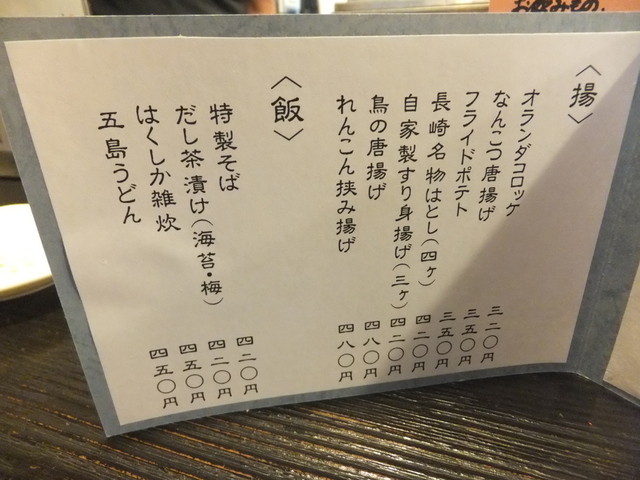 お飲みもの
〈揚〉
オランダコロッケ 三二〇円
なんこつ唐揚げ 三五〇円
フライドポテト 三五〇円
長崎名物はとし(四ヶ) 四二〇円
自家製すり身揚げ(三ヶ) 四二〇円
鳥の唐揚げ 四八〇円
れんこん挟み揚げ 四八〇円
〈飯〉
特製そば 四二〇円
だし茶漬け(海苔・梅) 四二〇円
はくしか雑炊 四五〇円
五島うどん 四五〇円